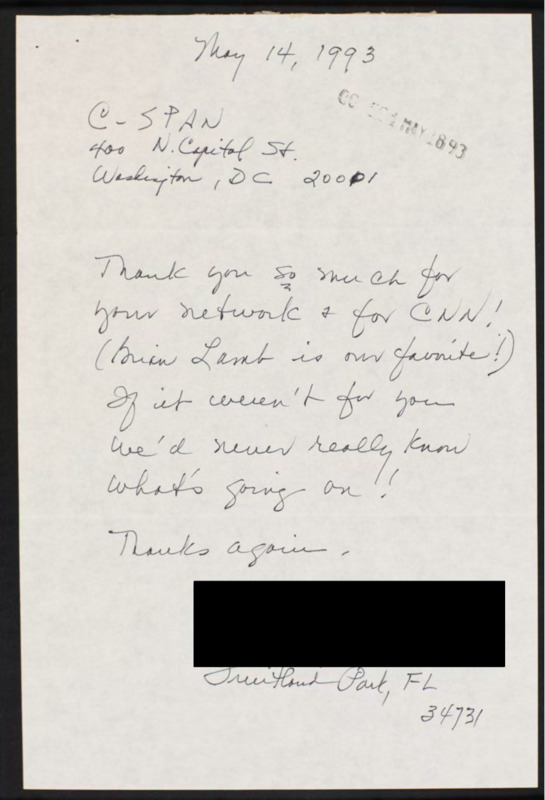 May 14, 1993
MAY 18 93
C-SPAN
400 N. Capitol St.
Washington, DC 20001
Thank you so much for
your network & for CNN!
(Brian Lamb is our favorite!)
If it weren't for you
we'd never really know
what's going on!!
Thanks again.
Fruitland Park, FL
34731